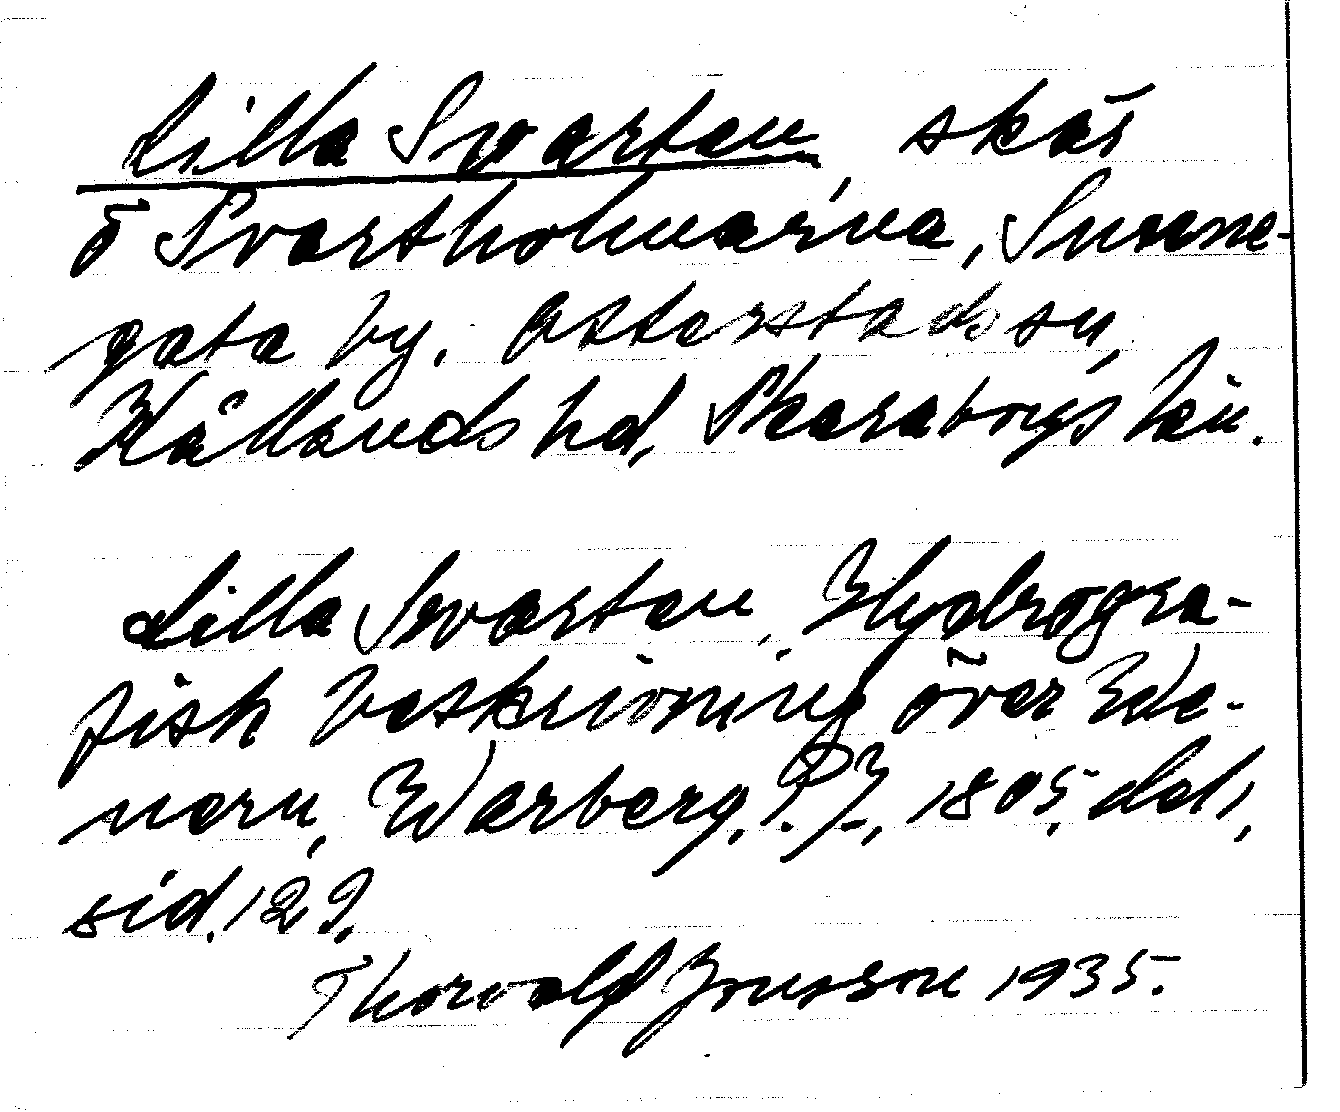 Lilla Svartan, skär
ö Svartholmarna, Sunne-
gata by. Otterstads sn,
Kållands hd, Skaraborgs län.
Lilla Svartan, Hydrogra-
fisk beskrivning över We-
nern, Warberg, P. J., 1805, del 1,
sid. 129.
Thorvald Jonsson 1935.